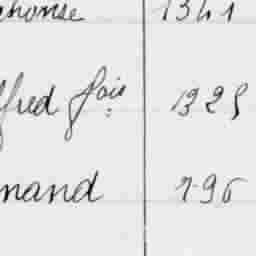 phonse 1341
fred fois 1325
nand 196